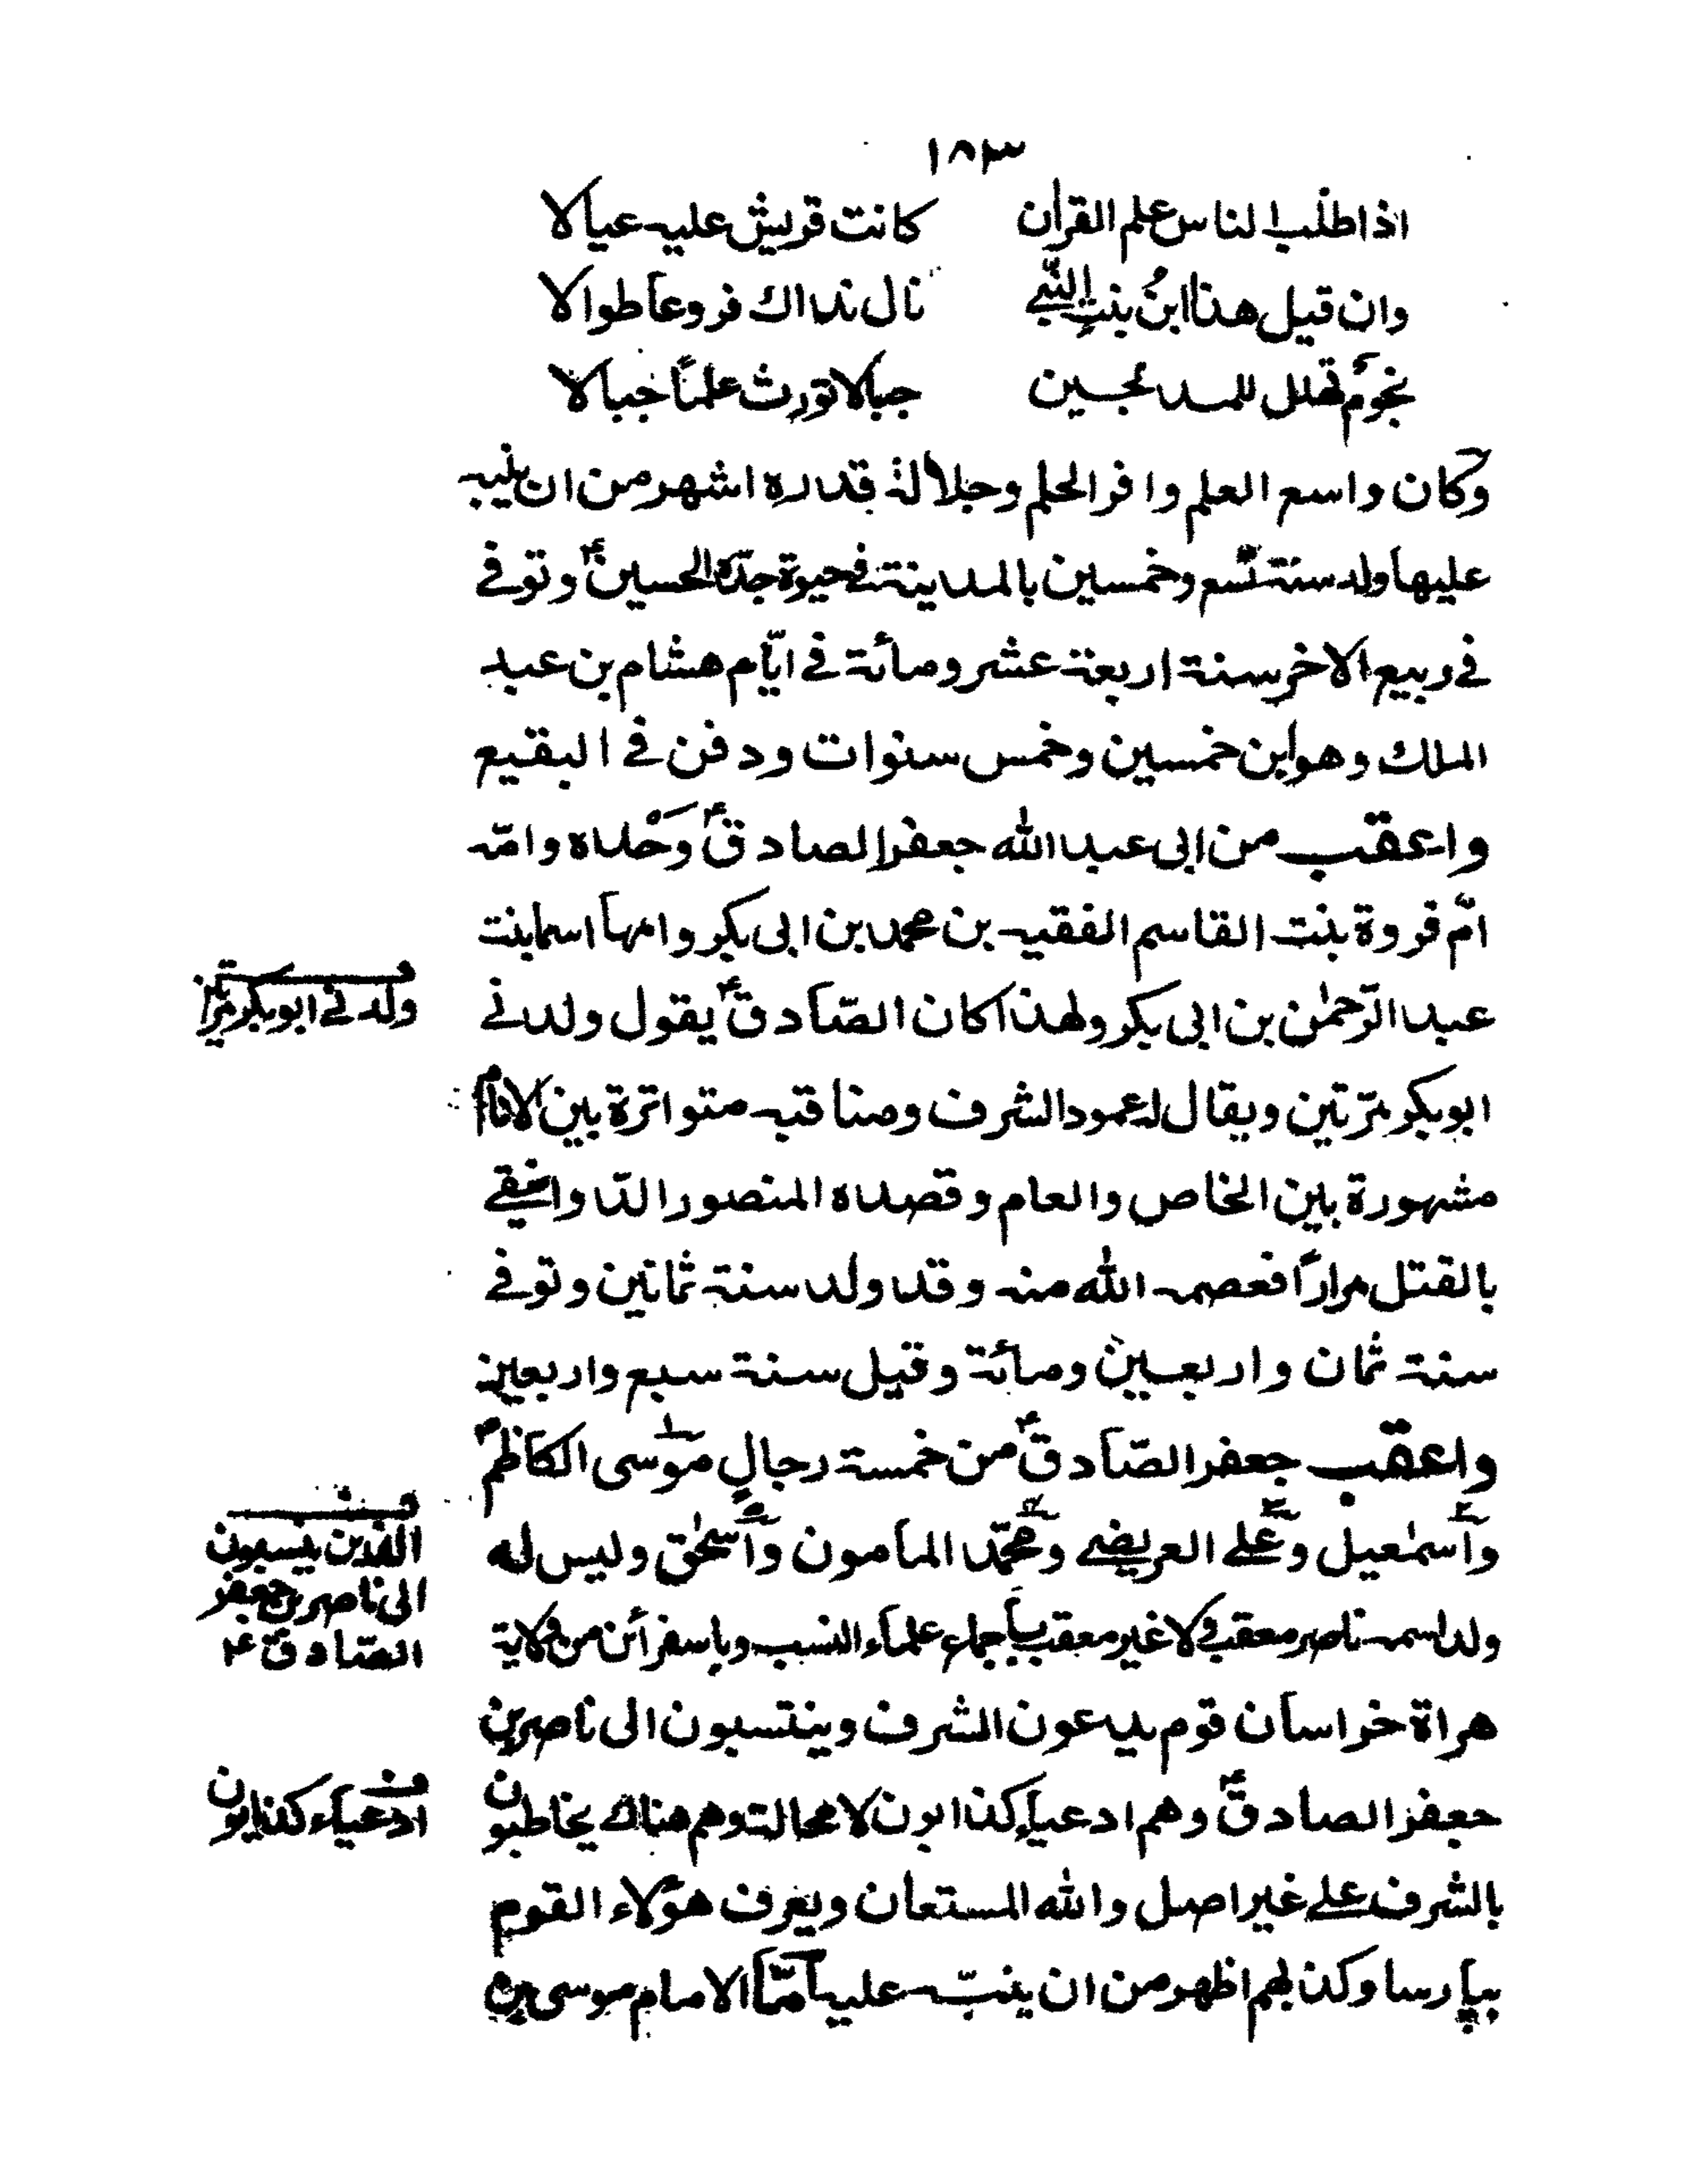 ١٨٣
اذا طلب الناس علم القران كانت قريش عليه عيالا
وان قيل هذا ابنُ بنتِ النّبي نال نداك فروعا طوالا
نجومٌ تهلل للمدلجين جبالا تورث علمًا جبالا
وكان واسع العلم وافر الحلم وجلالة قدره اشهر من ان ينبه
عليها ولد سنة تسع وخمسين بالمدينة في حيوة جدّه الحسين ؑ وتوفي
في ربيع الاخر سنة اربعة عشر ومائة في ايّام هشام بن عبد
الملك وهو ابن خمسين وخمس سنوات ودفن في البقيع
واعقب من ابى عبد الله جعفر الصادق ؑ وَحْده وامّه
امّ فروة بنت القاسم الفقيه بن محمد بن ابى بكر وامها اسما بنت
عبد الرّحمٰن بن ابى بكر ولهذا كان الصّادق ؑ يقول ولدنى
ولدنى ابوبكر مرّتين
ابوبكر مرّتين ويقال له عمود الشرف ومناقبه متواترة بين الانام
مشهورة بين الخاص والعام وقصده المنصور الدّوانيقى
بالقتل مرارًا فعصمه الله منه وقد ولد سنة ثمانين وتوفي
سنة ثمان واربعين ومائة وقيل سنة سبع واربعين
واعقب جعفر الصّادق ؑ من خمسة رجالٍ موسى الكاظم ؑ
واسمٰعيل وعلي العريضي ومحمّد المامون واسحٰق وليس له
الذين ينسبون
الى ناصر بن جعفر
الصّادق ؑ
ولد اسمه ناصر معقب ولا غير معقب باجماع علماء النسب وباسفرائن من ولاية
هراة خراسان قوم يدعون الشرف وينتسبون الى ناصر بن
جعفر الصادق ؑ وهم ادعياء كذابون لا محالة وهم هناك يخاطبون
ادعياء كذابون
بالشرف على غير اصل والله المستعان ويعرف هؤلاء القوم
ببارسا وكذبهم اظهر من ان ينبّه عليه امّا الامام موسى بن